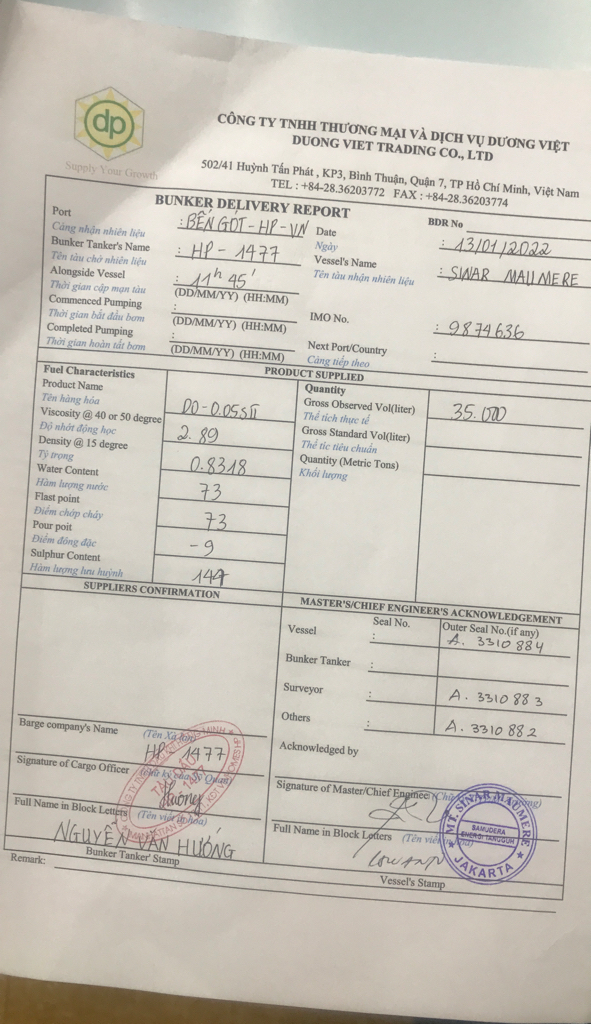 dp
Supply Your Growth
CÔNG TY TNHH THƯƠNG MẠI VÀ DỊCH VỤ DƯƠNG VIỆT
DUONG VIET TRADING CO., LTD
502/41 Huỳnh Tấn Phát , KP3, Bình Thuận, Quận 7, TP Hồ Chí Minh, Việt Nam
TEL : +84-28.36203772 FAX : +84-28.36203774
BUNKER DELIVERY REPORT
BDR No
Port : BẾN GÓT-HP-VN Date : 13/01/2022
Cảng nhận nhiên liệu Ngày
Bunker Tanker's Name : HP-1477 Vessel's Name : SINAR MAUMERE
Tên tàu chở nhiên liệu Tên tàu nhận nhiên liệu
Alongside Vessel : 11h 45'
Thời gian cập mạn tàu (DD/MM/YY) (HH:MM)
Commenced Pumping : IMO No. : 9874636
Thời gian bắt đầu bơm (DD/MM/YY) (HH:MM)
Completed Pumping : Next Port/Country :
Thời gian hoàn tất bơm (DD/MM/YY) (HH:MM) Cảng tiếp theo
PRODUCT SUPPLIED
Fuel Characteristics Quantity
Product Name DO-0.05SII Gross Observed Vol(liter) 35.000
Tên hàng hóa Thể tích thực tế
Viscosity @ 40 or 50 degree 2.89 Gross Standard Vol(liter)
Độ nhớt động học Thể tíc tiêu chuẩn
Density @ 15 degree 0.8318 Quantity (Metric Tons)
Tỷ trọng Khối lượng
Water Content 73
Hàm lượng nước
Flast point 73
Điểm chớp cháy
Pour poit -9
Điểm đông đặc
Sulphur Content 147
Hàm lượng lưu huỳnh
SUPPLIERS CONFIRMATION MASTER'S/CHIEF ENGINEER'S ACKNOWLEDGEMENT
Seal No. Outer Seal No.(if any)
Vessel : A. 3310884
Bunker Tanker :
Surveyor : A. 3310883
Others : A. 3310882
Barge company's Name (Tên Xà lan) Acknowledged by
HP-1477
Signature of Cargo Officer Signature of Master/Chief Engineer
Hướng
Full Name in Block Letters (Tên viết in hoa) Full Name in Block Letters (Tên viết
NGUYỄN VĂN HƯỚNG
Bunker Tanker' Stamp Vessel's Stamp
MT. SINAR MAUMERE
SAMUDERA
ENERGI TANGGUH
JAKARTA
Remark: